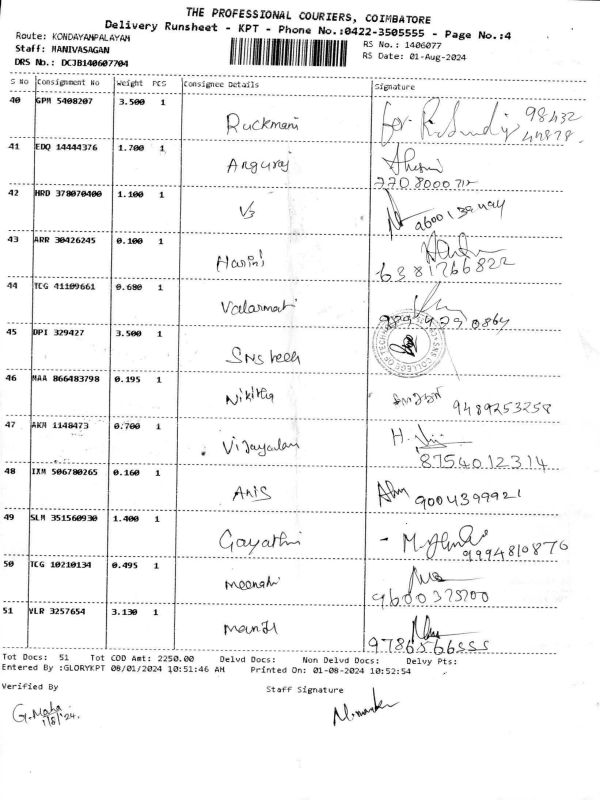 THE PROFESSIONAL COURIERS, COIMBATORE
Delivery Runsheet - KPT - Phone No.:0422-3505555 - Page No.:4
Route: KONDAYAMPALAYAM
RS No.: 1406077
Staff: MANIVASAGAN
RS Date: 01-Aug-2024
DRS No.: DCJB140607704
S No Consignment No Weight PCS Consignee Details Signature
40 GPM 5408207 3.500 1 Ruckmani for 98432
41 EDQ 14444376 1.700 1 Anguraj
7708000712
42 HRD 378070400 1.100 1 V3
43 ARR 30426245 0.100 1 Harini
6381766822
44 TCG 41109661 0.680 1 Valarmati
45 DPI 329427 3.500 1 SNS tech
46 MAA 866483798 0.195 1 Nikitha
9489253258
47 AKM 1148473 0.700 1 Vijayalan H.
8754012314
48 IXM 506780265 0.160 1 Anis 9004399921
49 SLM 351560930 1.400 1 Gayathri
9994810876
50 TCG 10210134 0.495 1 meenakshi
9600375700
51 VLR 3257654 3.130 1
9786566555
Tot Docs: 51 Tot COD Amt: 2250.00 Delvd Docs: Non Delvd Docs: Delvy Pts:
Entered By :GLORYKPT 08/01/2024 10:51:46 AM Printed On: 01-08-2024 10:52:54
Verified By Staff Signature
G. Maha
1/8/'24.